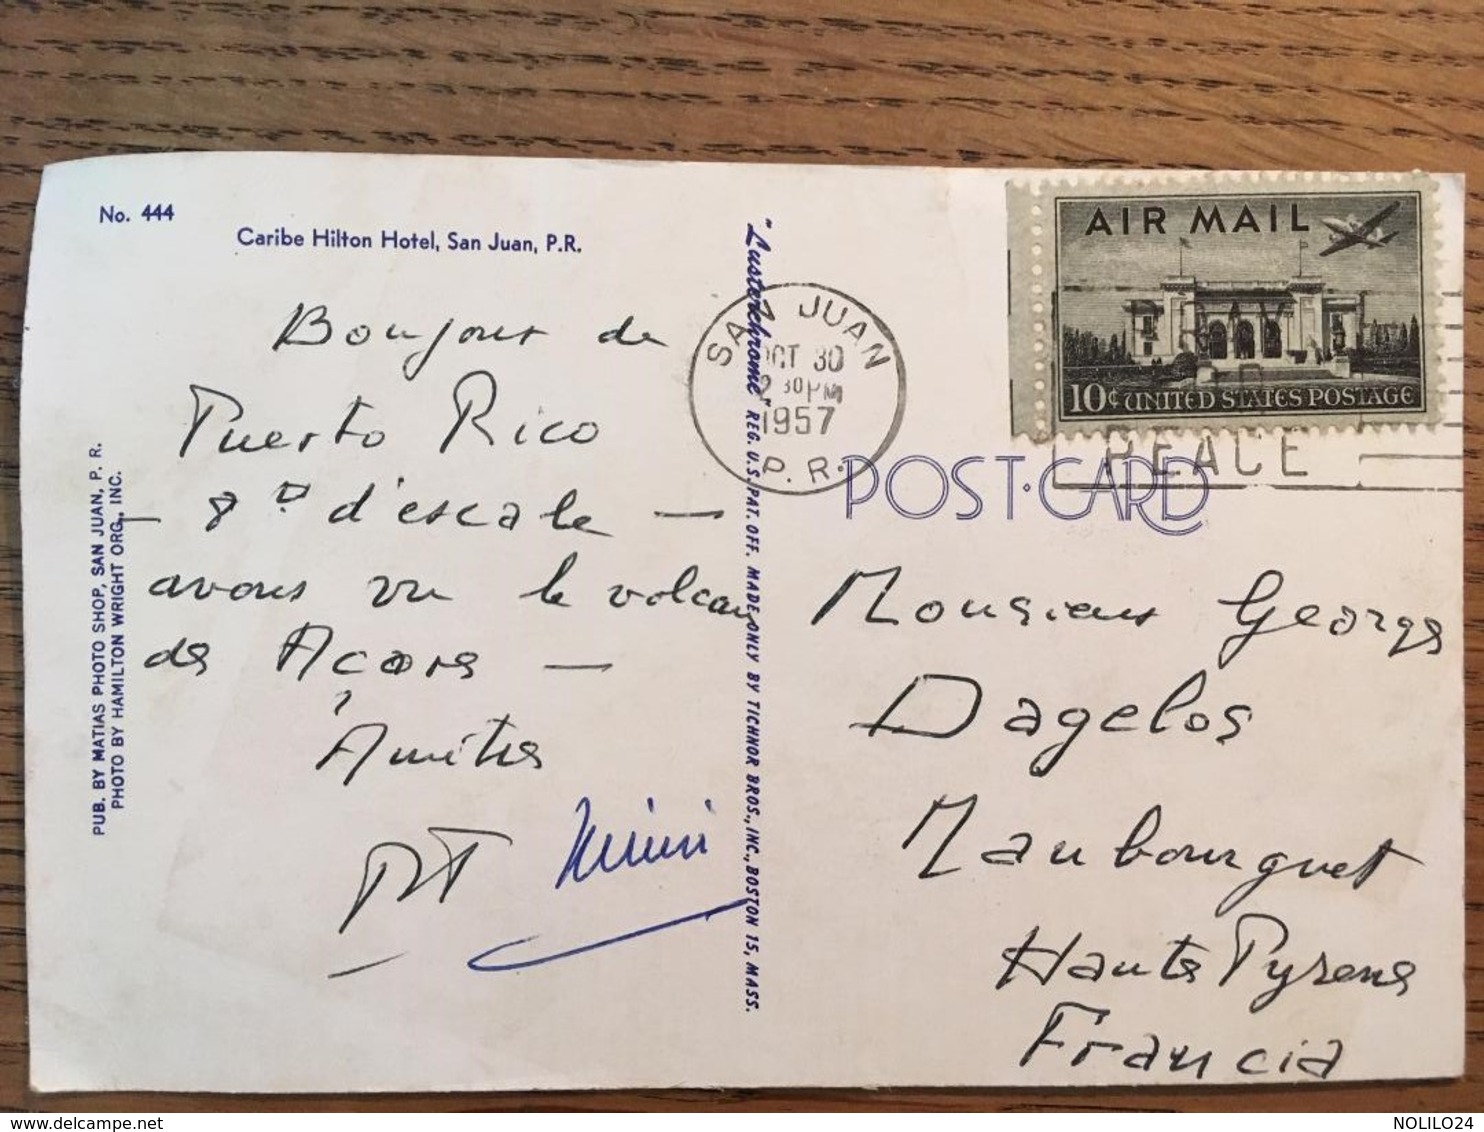 No. 444
Caribe Hilton Hotel, San Juan, P.R.
Bonjour de
Puerto Rico
- 8 d'escale -
avons vu le volcan
des Acores -
Amitiés
Mimi
PUB. BY MATIAS PHOTO SHOP, SAN JUAN, P. R.
PHOTO BY HAMILTON WRIGHT ORG., INC.
"Lusterchrome" REG. U.S. PAT. OFF. MADE ONLY BY TICHNOR BROS., INC., BOSTON 15, MASS.
SAN JUAN
OCT 30
2 30 PM
1957
P.R.
AIR MAIL
10¢ UNITED STATES POSTAGE
PRAY
FOR
PEACE
POST·CARD
Monsieur George
Dagelos
Maubourguet
Hautes Pyrenes
Francia
NOLILO24